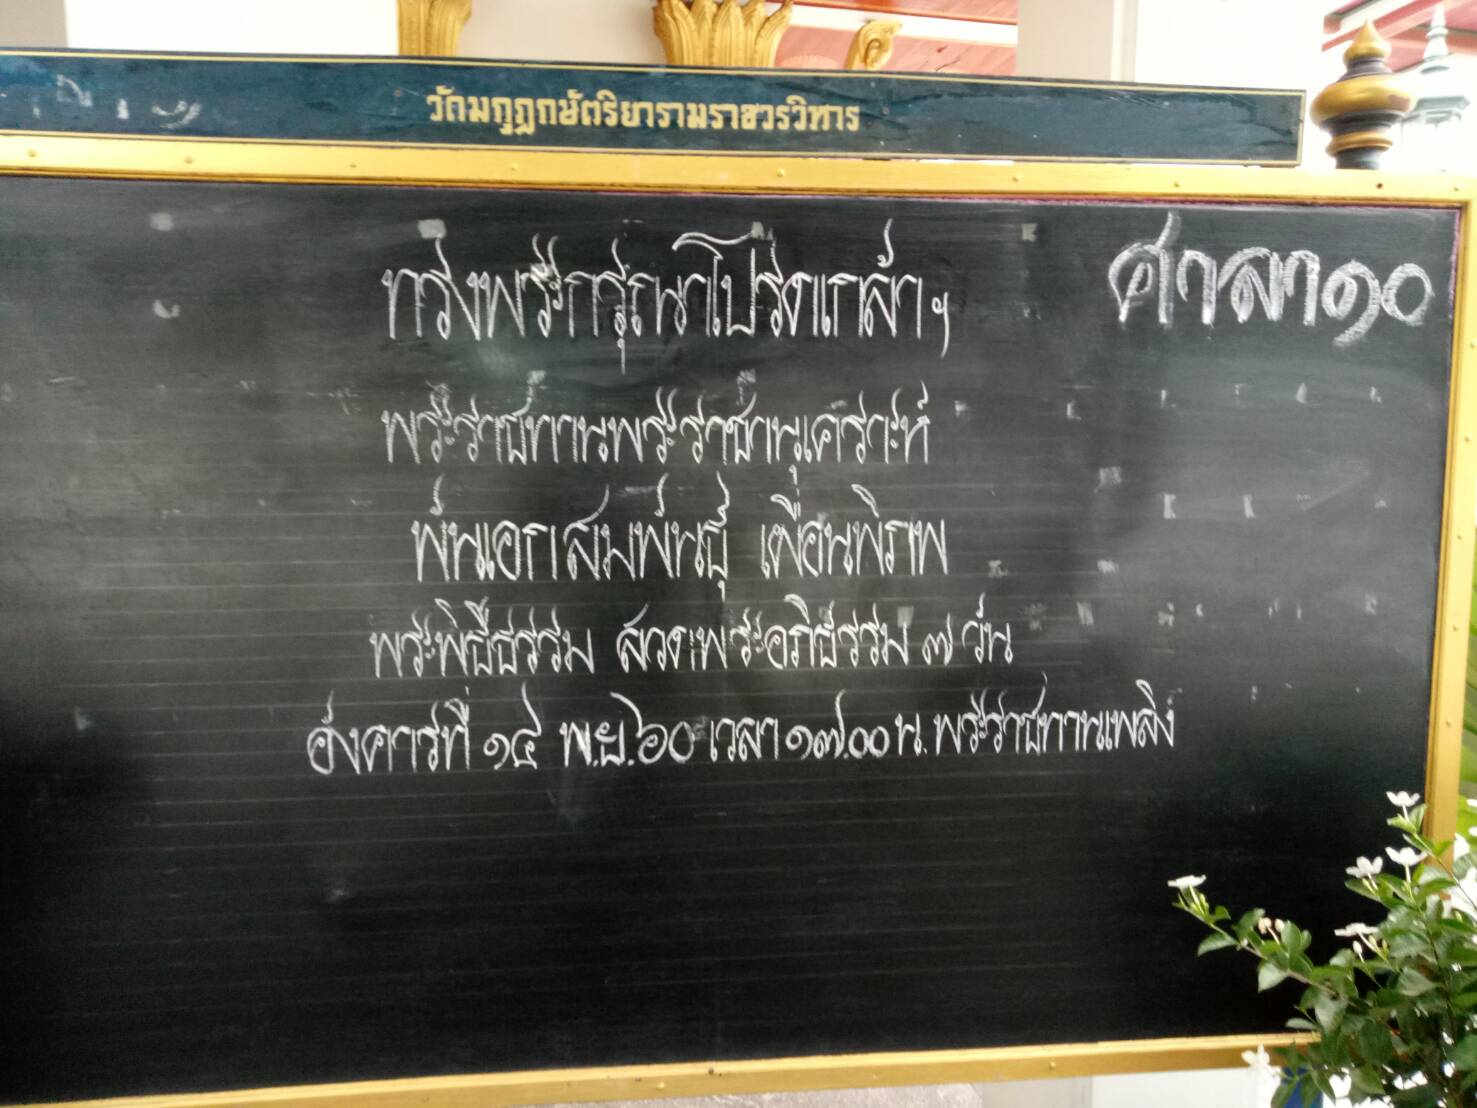 วัดมกุฏกษัตริยารามราชวรวิหาร
ศาลา๑๐
ทรงพระกรุณาโปรดเกล้าฯ
พระราชทานพระราชานุเคราะห์
พันเอกสมพันธุ์ เพื่อนพิภพ
พระพิธีธรรม สวดพระอภิธรรม ๗ วัน
อังคารที่ ๑๔ พ.ย.๖๐ เวลา ๑๗.๐๐ น. พระราชทานเพลิง